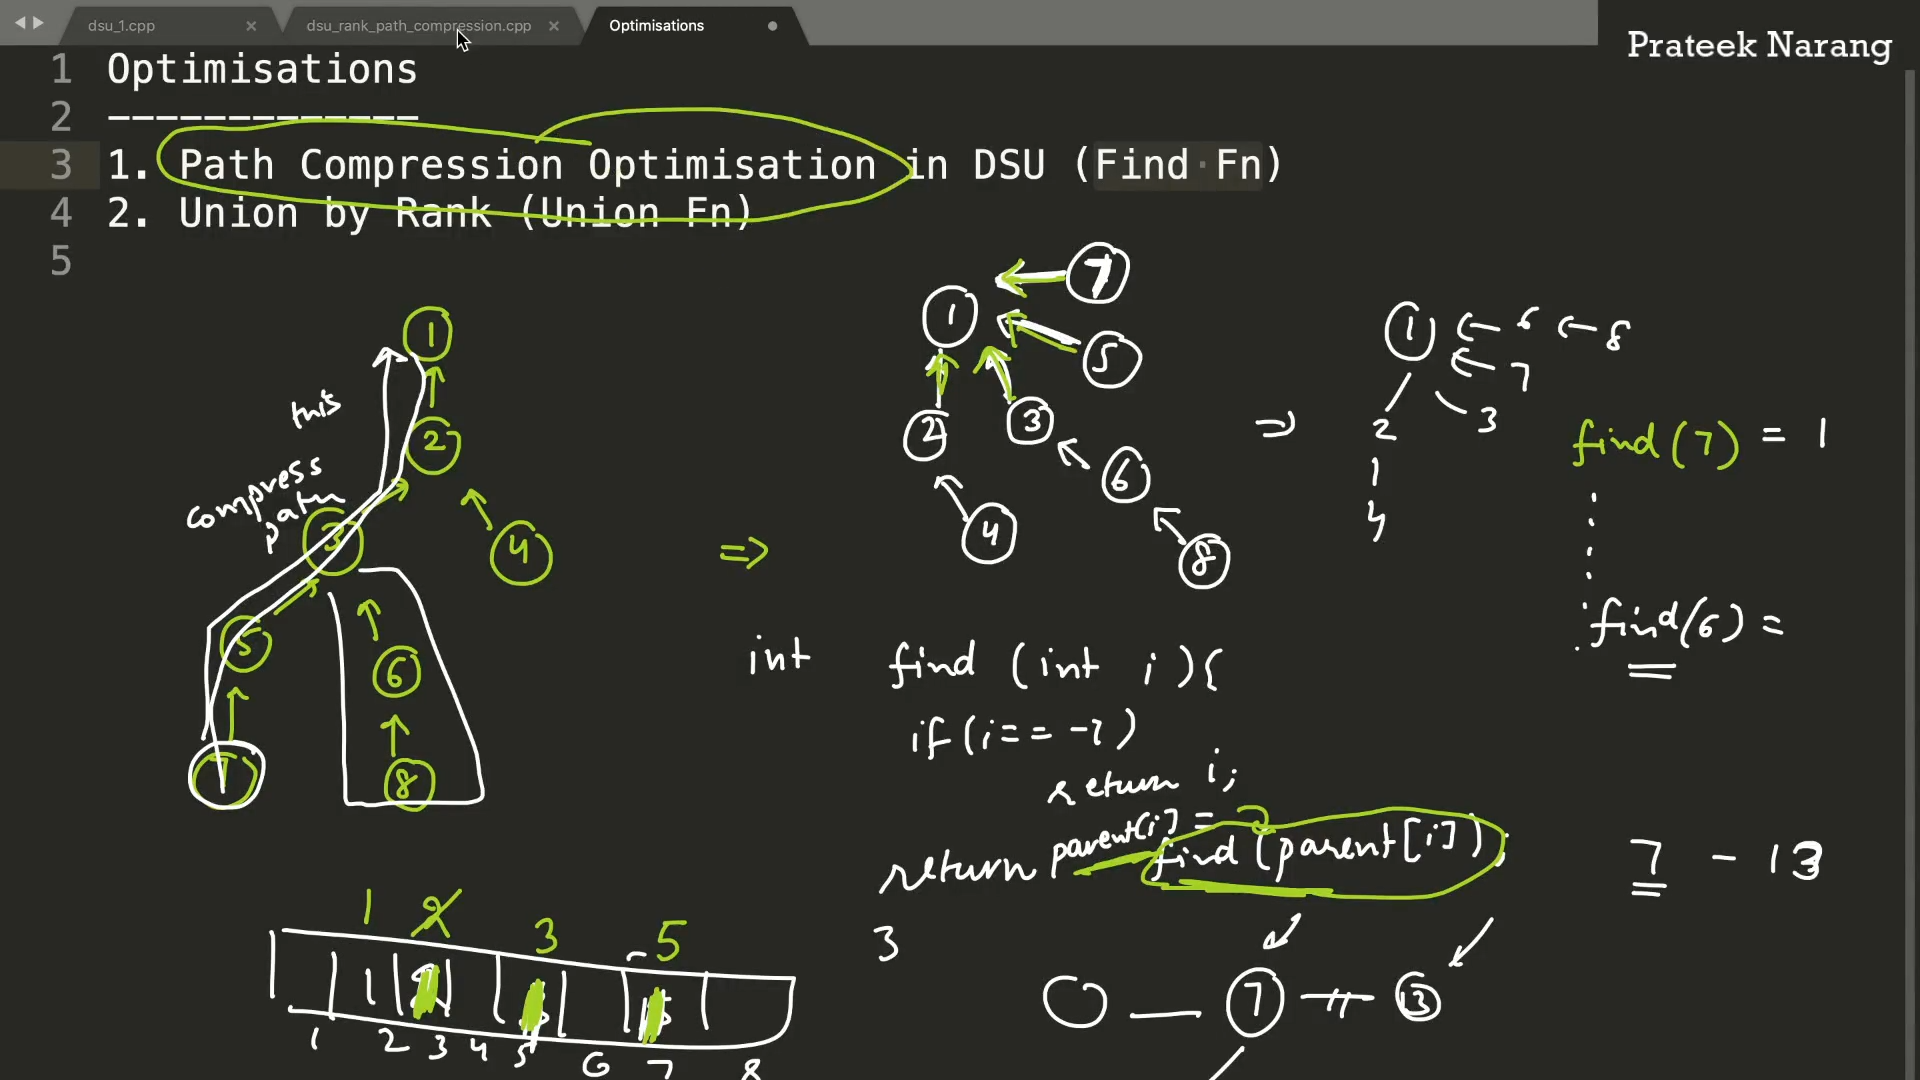 dsu_1.cpp
dsu_rank_path_compression.cpp
Optimisations
Prateek Narang
1 Optimisations
2 -------------
3 1. Path Compression Optimisation in DSU (Find Fn)
4 2. Union by Rank (Union Fn)
5
1
2
3
4
5
6
7
8
this
compress path
=>
1
7
5
2
3
6
4
8
=>
1 ← 6 ← 8
← 7
2
3
4
find(7) = 1
find(6) =
int find (int i){
if(i == -1)
return i;
return parent[i] = find (parent[i]);
7 - 13
3
7
13
1 2 3 5
1
1 2 3 4 5 6 7 8